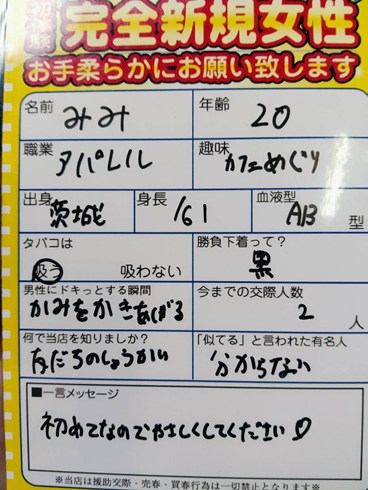 初体験
完全新規女性
お手柔らかにお願い致します
名前 みみ 年齢 20
職業 アパレル 趣味 カフェめぐり
出身 茨城 身長 161 血液型 AB 型
タバコは 吸う 吸わない 勝負下着って? 黒
男性にドキっとする瞬間 かみをかきあげる 今までの交際人数 2 人
何で当店を知りましたか? 友だちのしょうかい 「似てる」と言われた有名人 分からない
■一言メッセージ
初めてなのでやさしくしてください♡
※当店は援助交際・売春・買春行為は一切禁止となります※